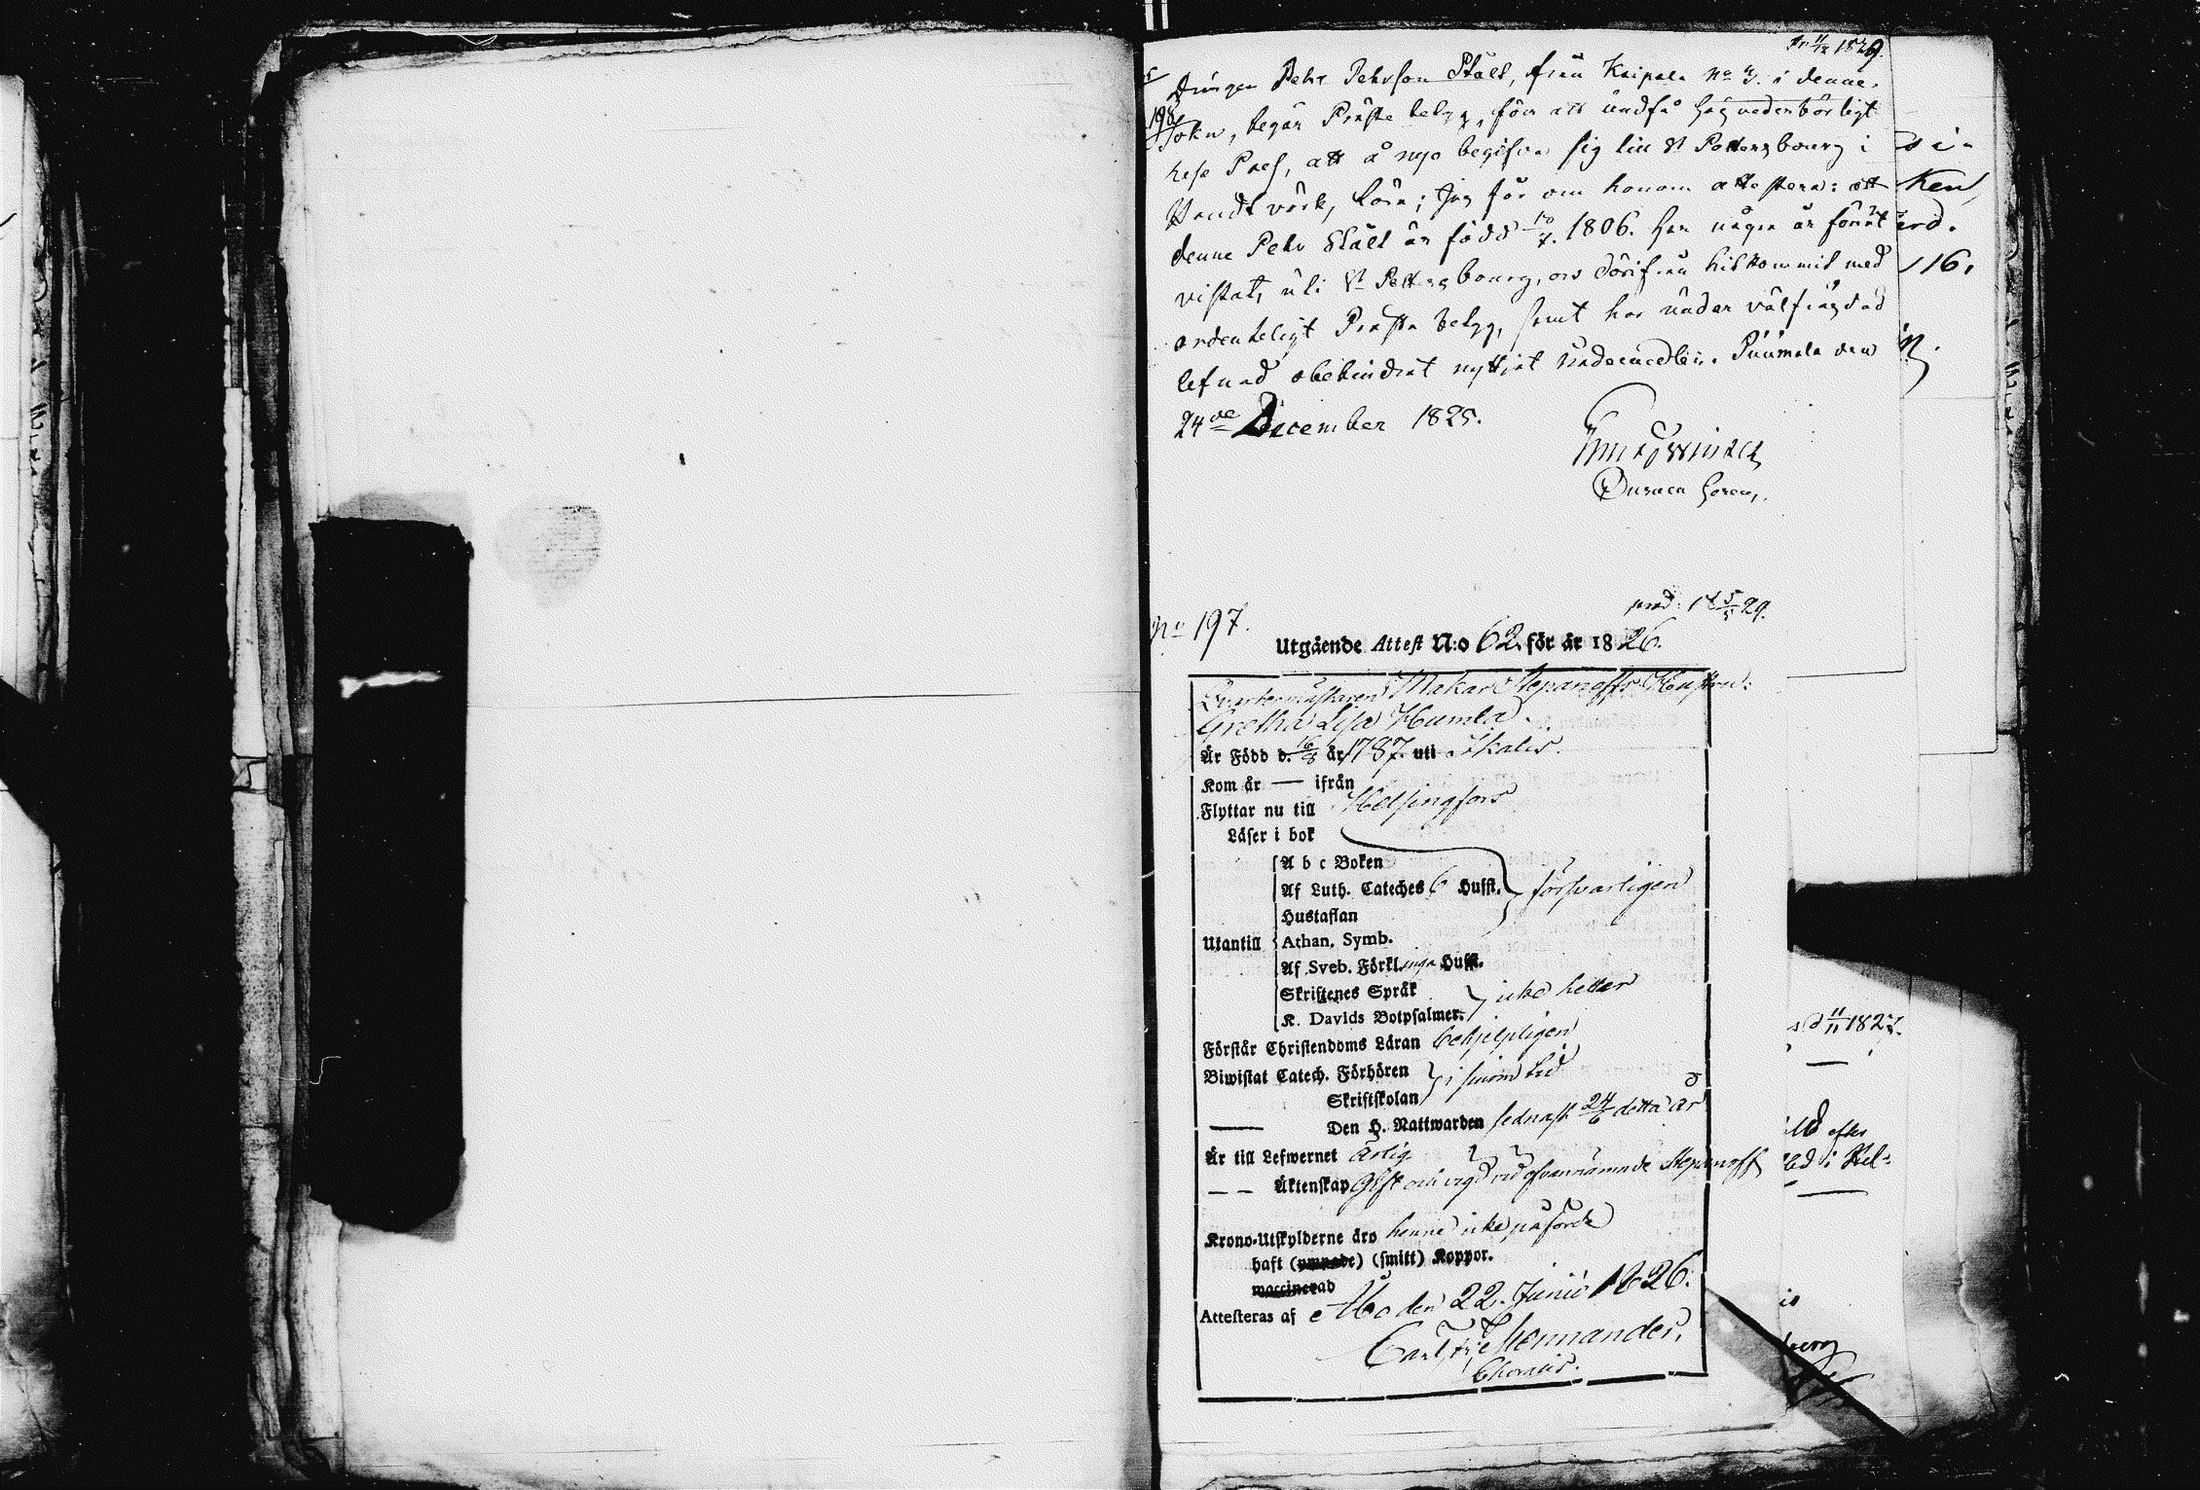 Pr: 11/12 1829.
198
Drängen Petr Pehrson Ståls, från Kaipala No 4. i denne
Sokn, begär Präste betyg, för att undfå höga vederbörligt
rese Pass, att å nyo begifva sig till St Pettersbourg i
Handtvärks lära; Jag får om honom attestera: att
denne Petr Ståls är född 10/7. 1806. har några år förut
vistats uti St Pettersbourg, och därifrån hitkommit med
ordenteligt Prästa betyg, samt har under välfrägdad
lefnad obehindrat nyttjat Nådemedlen. Puumala den
24de December 1825.
No 197.
prod: 18 5/5 29.
Utgående Attest N:o 62. för år 1826.
Qvartermästaren Makar Stepanoffs Hustru:
Gretha Lisa Humla.
Är Född d. 16/8 år 1787. uti Ikalis.
Kom år — ifrån
Flyttar nu till Helsingfors
Läser i bok
A b c Boken
Af Luth. Cateches 6 Husst. försvarligen
Hustaflan
Utantill Athan. Symb.
Af Sveb. Förkl. inga Husst.
Skriftenes Språk icke heller
K. Davids Botpsalmer.
Förstår Christendoms Läran behjelpligen
Biwistat Catech. Förhören i sinom tid
Skriftskolan
Den H. Nattwarden sednast 24/6 detta år
Är till Lefwernet ärlig
— — Äktenskap Gift och vigd vid ofvannämnde Stepanoff
Krono-Utskylderne äro henne icke påförde
haft (ympade) (smitt) Koppor.
waccinerad
Attesteras af Åbo den 22. Junii 1826.
Carl Fr: Mennander.
d 11/11 1827.